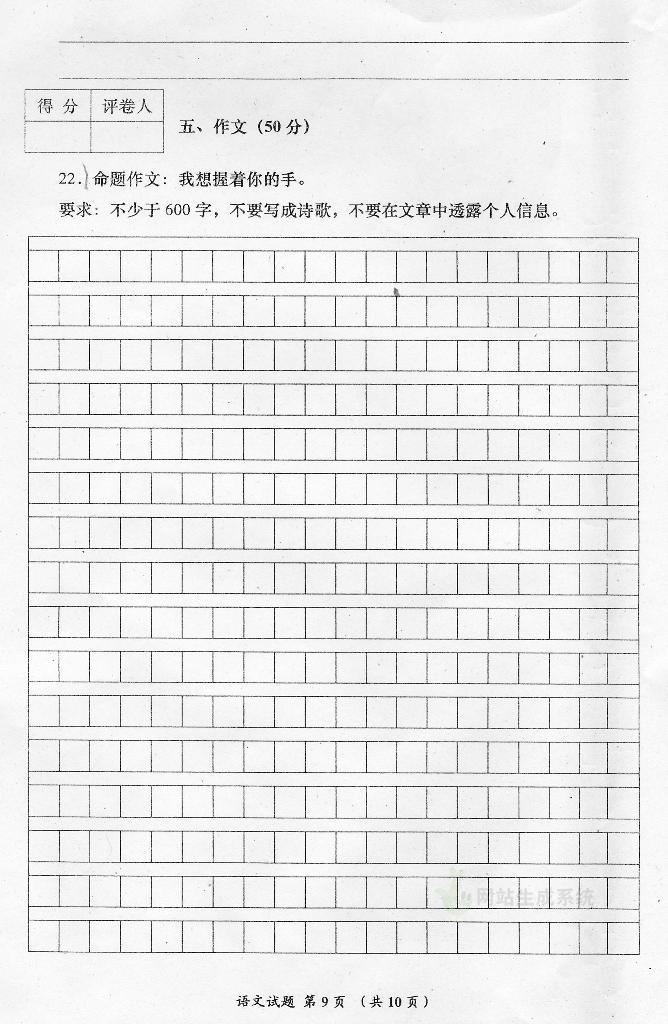 得 分 评卷人
五、作文（50 分）
22. 命题作文：我想握着你的手。
要求：不少于 600 字，不要写成诗歌，不要在文章中透露个人信息。
网站生成系统
语文试题 第 9 页 （共 10 页）